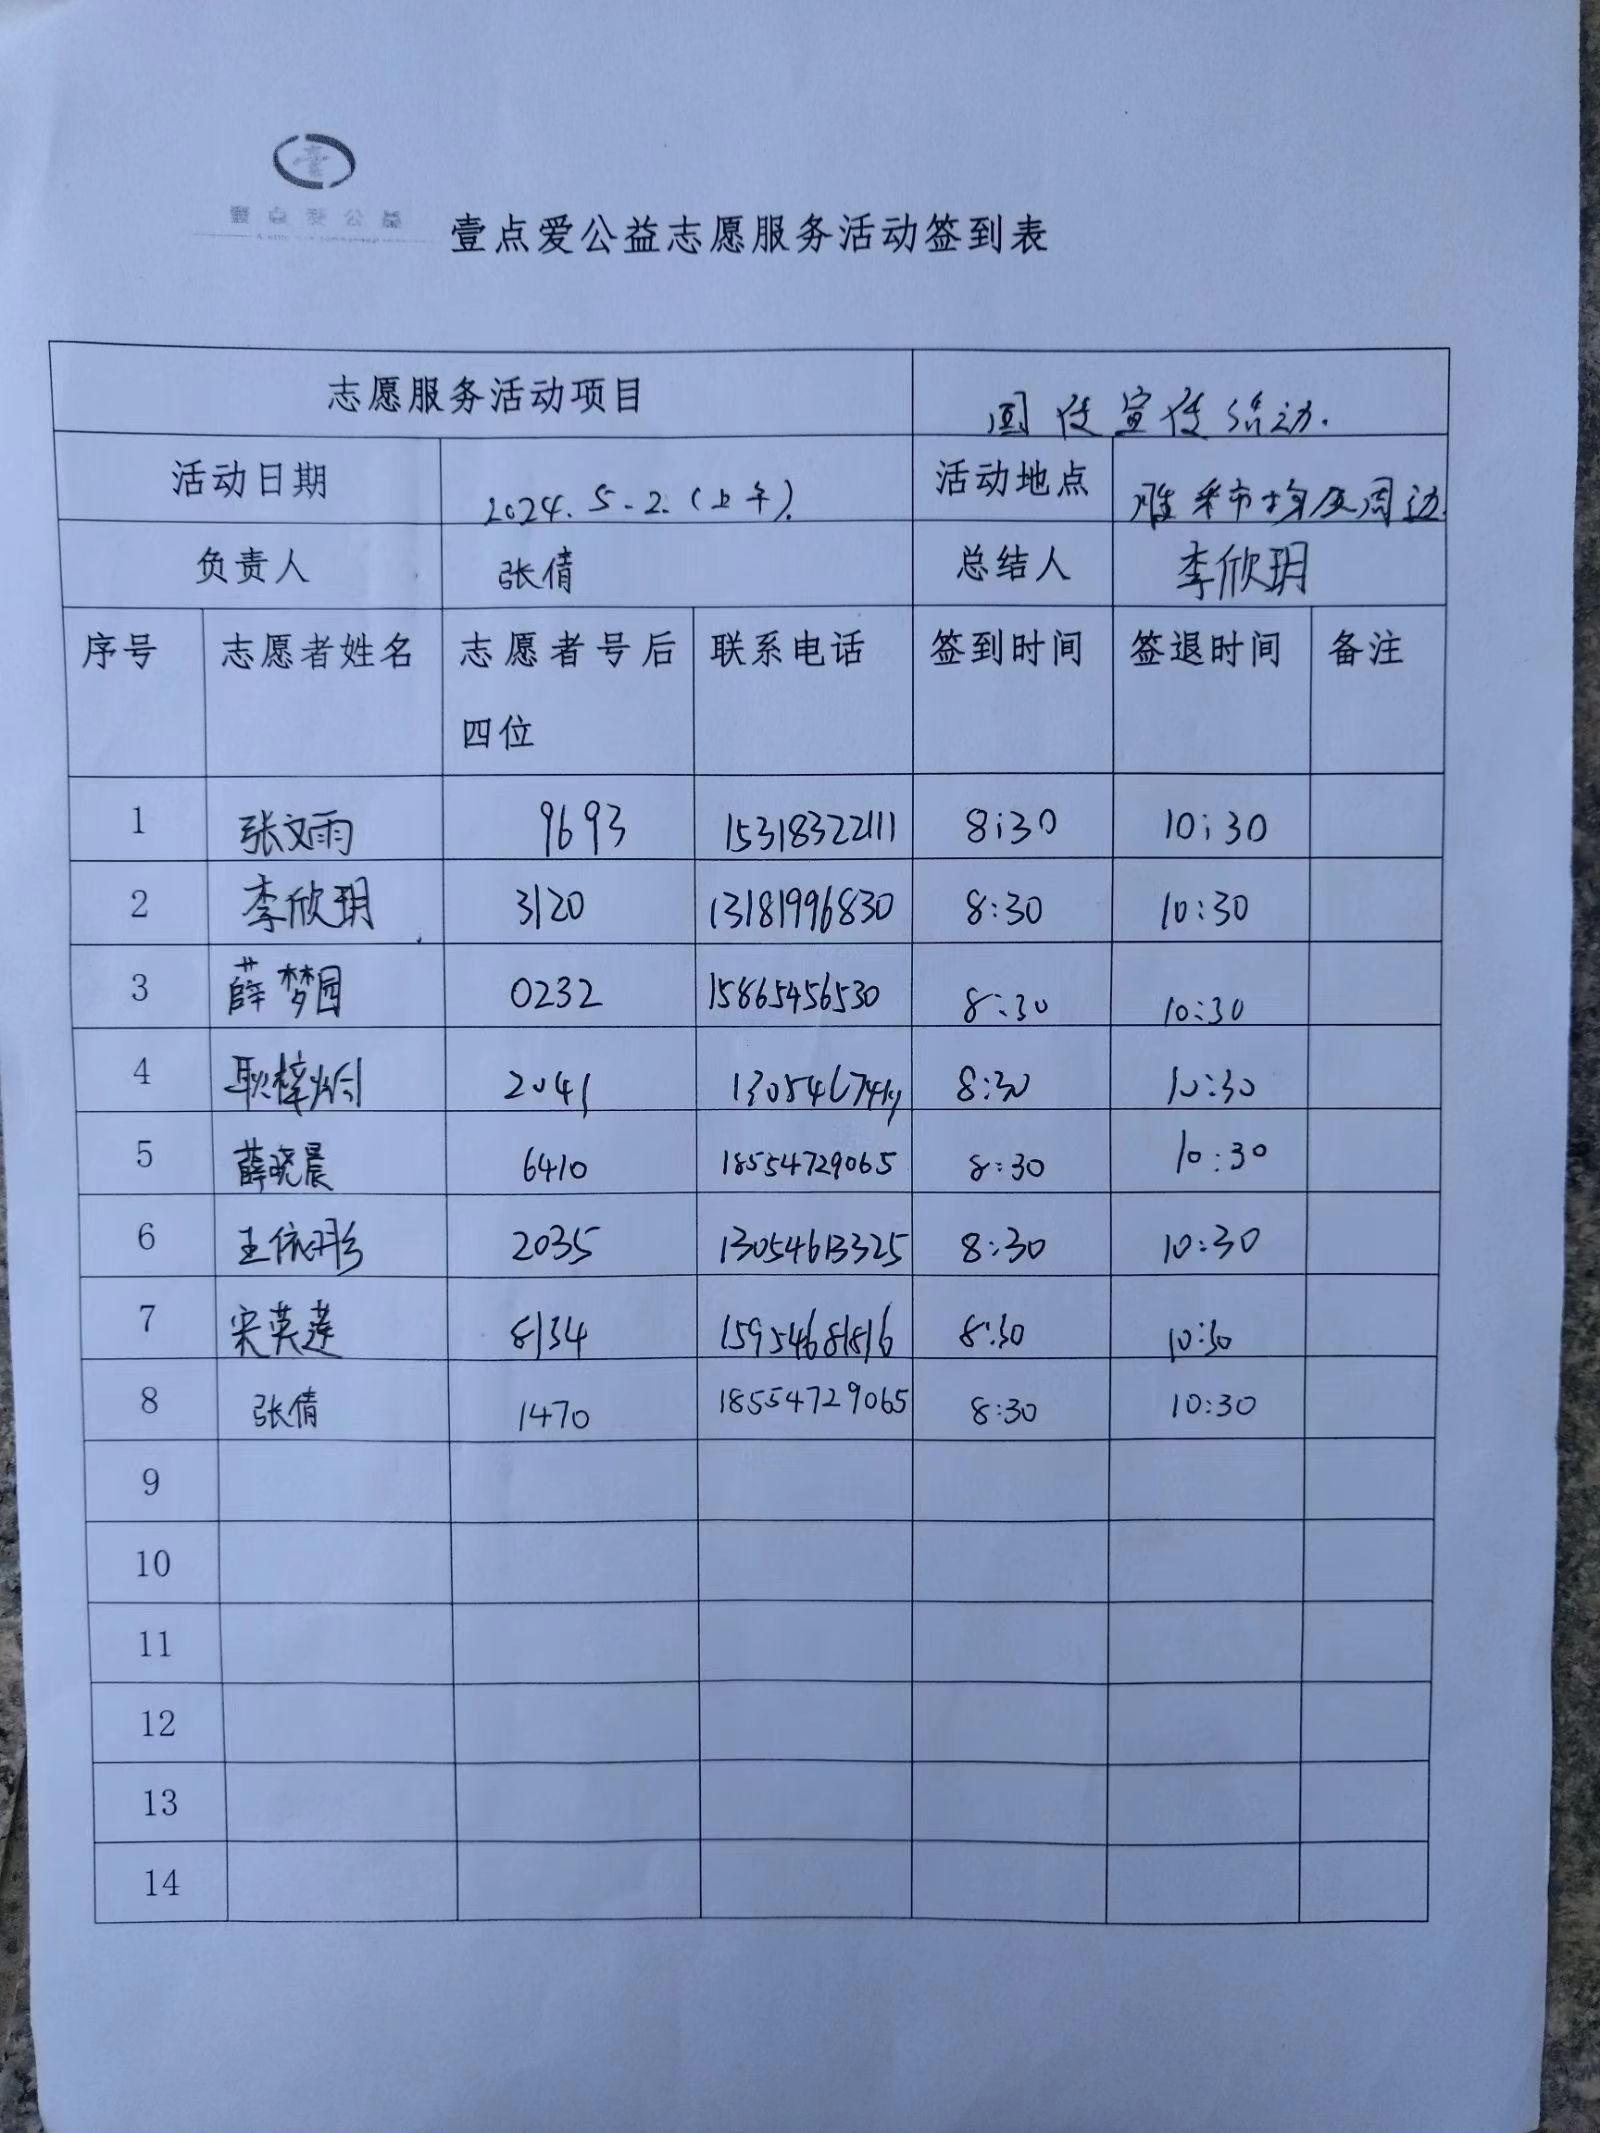 壹点爱公益
壹点爱公益志愿服务活动签到表
志愿服务活动项目 宣传活动.
活动日期 2024.5-2.(上午). 活动地点 周边
负责人 张倩 总结人 李欣玥
序号 志愿者姓名 志愿者号后 联系电话 签到时间 签退时间 备注
四位
1 张文雨 9693 15318322111 8:30 10:30
2 李欣玥 3120 13181996830 8:30 10:30
3 薛梦园 0232 15865456530 8:30 10:30
4 耿梓 2041 8:30 10:30
5 薛晓晨 6410 18554729065 8:30 10:30
6 王依彤 2035 13054613325 8:30 10:30
7 宋英莲 8134 15954681816 8:30 10:30
8 张倩 1470 18554729065 8:30 10:30
9
10
11
12
13
14